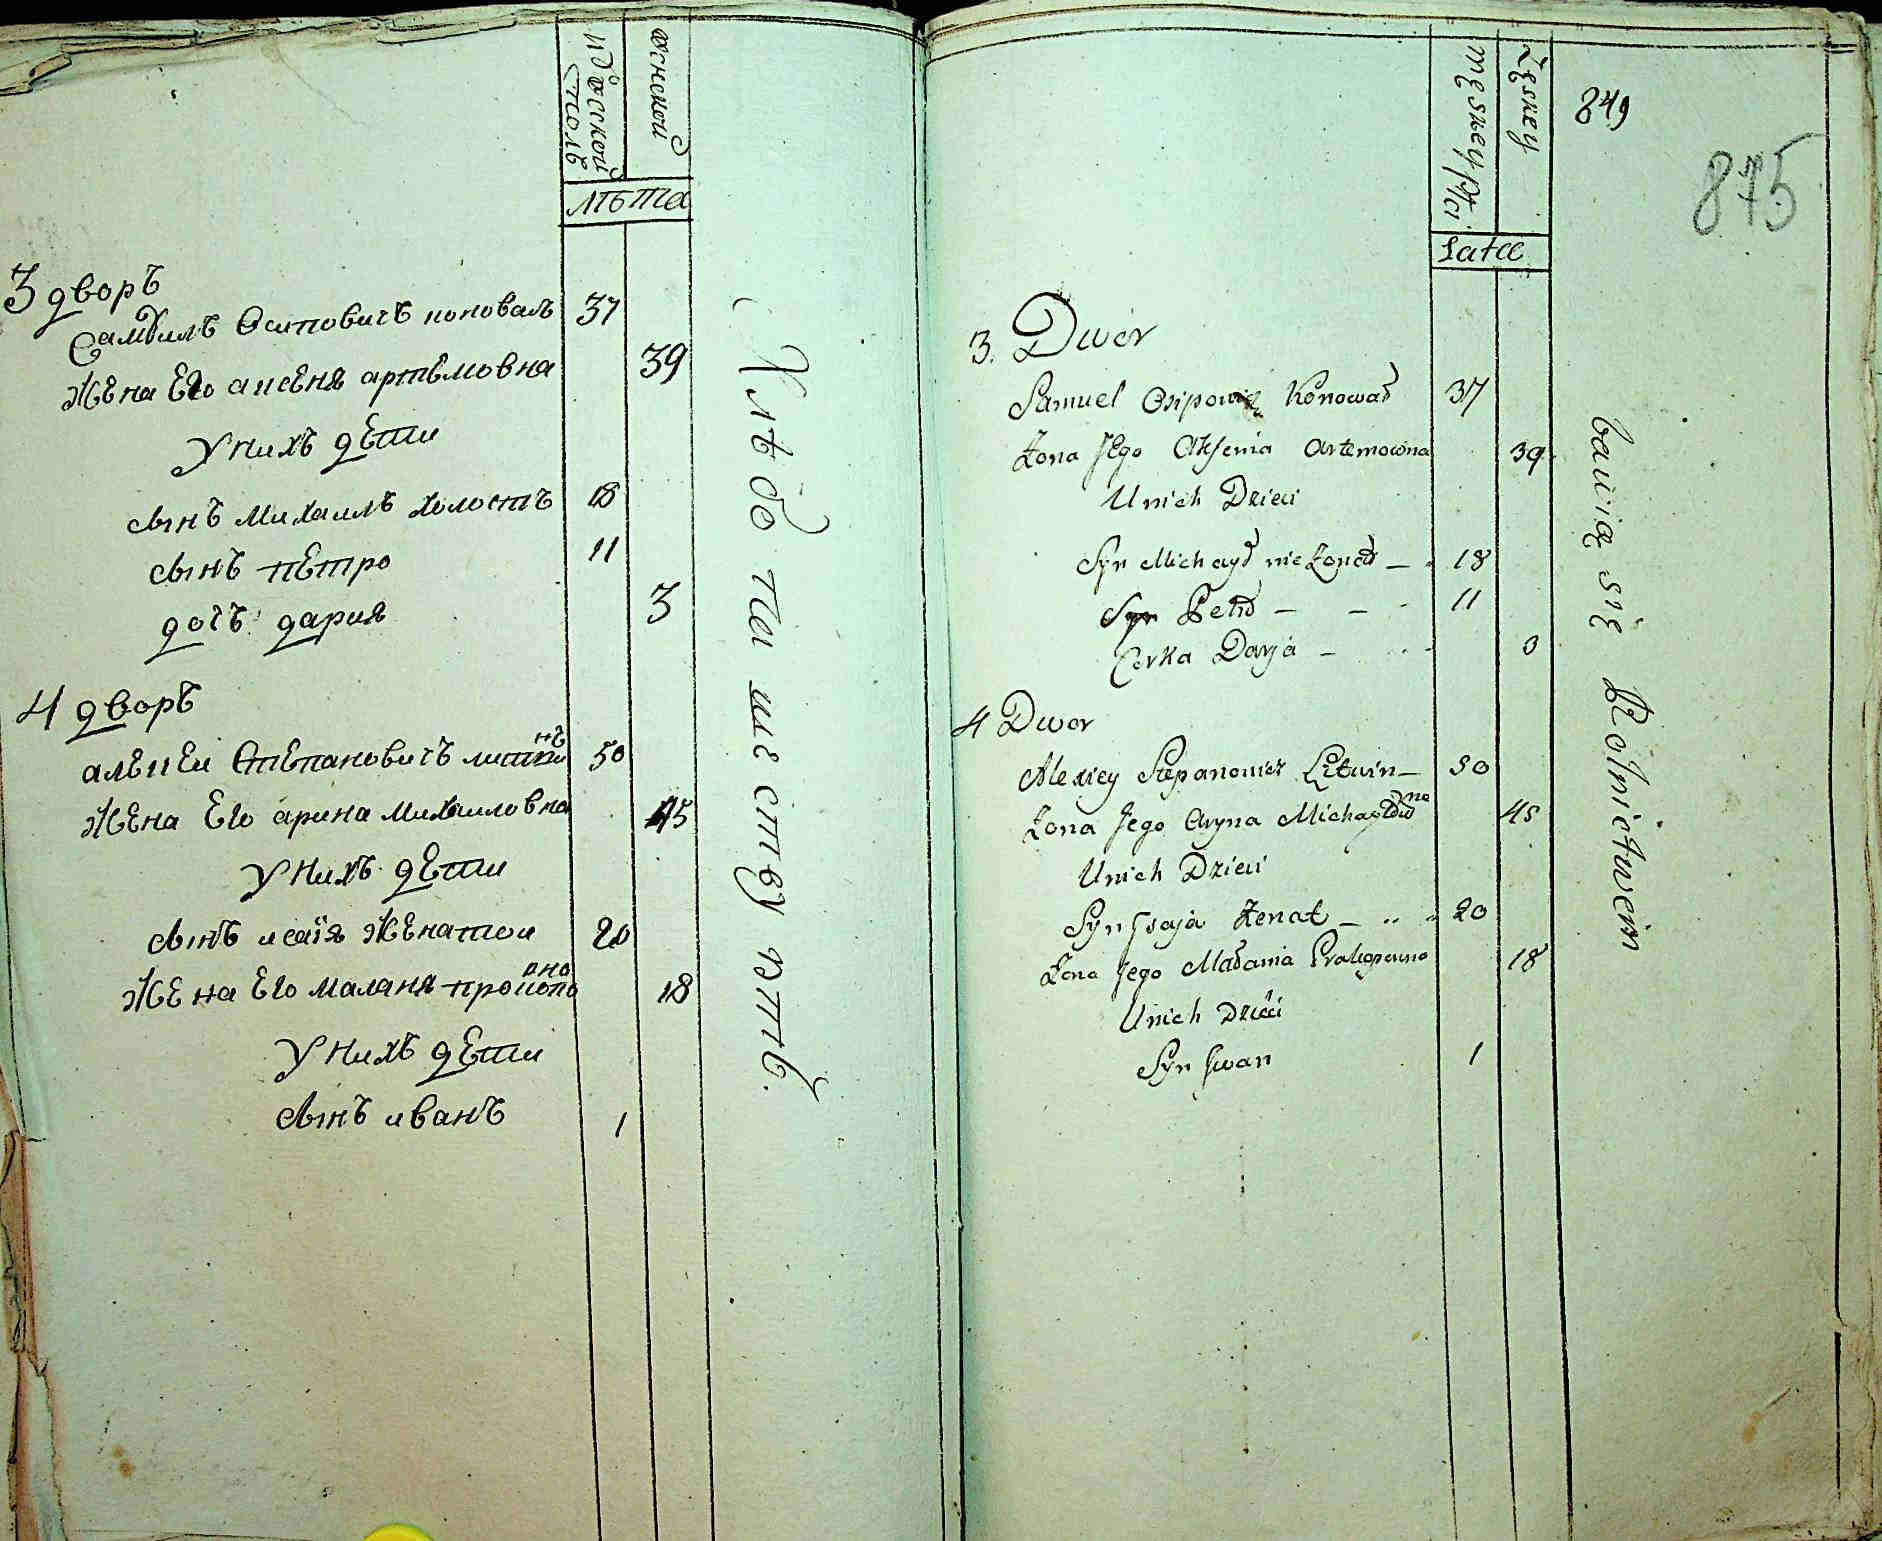 женской
лѣта
3 дворъ
Самуилъ Осиповичъ коновалъ 37
Жена Его аксеня артемовна 39
У нихъ дЕти
сынъ Михаилъ холостъ 18
сынъ пЕтро 11
дочъ дария 3
4 дворъ
алЕкЕи СтЕпановичъ литвинъ 50
ЖЕна Его арина михаиловна 45
У нихъ дЕти
сынъ исаія ЖЕнатои 20
ЖЕна Его маланя прокоповна 18
У нихъ дЕти
сынъ иванъ 1
Хлѣбопашествуютъ.
męskey płci
Żęskey
849
875
Lata
3. Dwór
Samuel Osipowicz Konował 37
Żona Jego Aksenia Artemowna 39
Unich Dzieci
Syn Michaył nieżonat 18
Syn Petro 11
Corka Darja 3
4 Dwor
Alexiey Stepanowicz Litwin 50
Żona Jego Aryna Michayłowna 45
Unich Dzieci
Syn Jsaja Żenat 20
Żona Jego Małania Prakopowna 18
Unich Dzieci
Syn Jwan 1
bawią się Rolnictwem